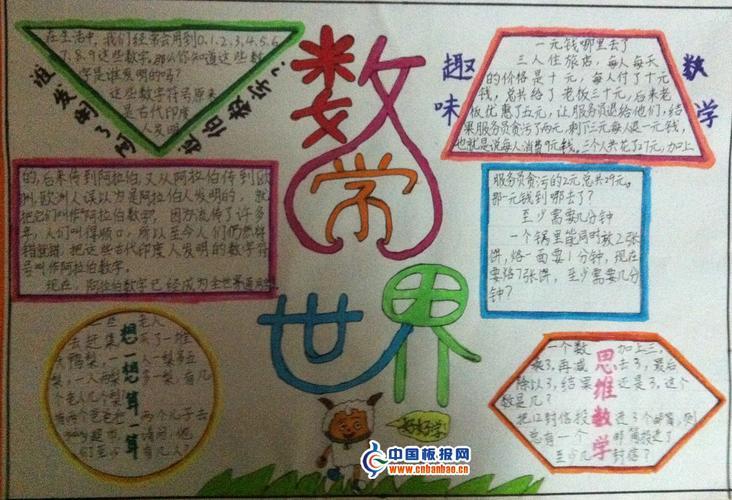 数学
世界
在生活中,我们经常会用到0、1、2、3、4、5、6
7、8、9这些数字,那么你知道这些数
字是谁发明的吗?
这些数字符号原来
是古代印度
人发明
谁发明了阿
拉伯数字?
的,后来传到阿拉伯,又从阿拉伯传到欧
洲,欧洲人误以为是阿拉伯人发明的,就
把它们叫做“阿拉伯数字”,因为流传了许多
年,人们叫得顺口,所以至今人们仍然将
错就错,把这些古代印度人发明的数字符
号叫作阿拉伯数字。
现在,阿拉伯数字已经成为全世界通用
想一想算一算
老人
去赶集
了一堆
梨,一人两
多一梨,有几
个老人几个梨
有两个爸爸
两个儿子去
请问,他
们至少
有几人?
好好学
趣味
数学
一元钱哪里去了
三人住旅店,每人每天
的价格是十元,每人付了十元
钱,总共给了老板三十元,后来老
板优惠了五元,让服务员退给他们,结
果服务员贪污了两元,剩下三元每人退一元钱,
也就是说每人消费9元钱。三个人共花了27元,加上
服务员贪污的2元总共29元。
那一元钱到哪去了?
至少需要几分钟
一个锅里能同时放2张
饼,烙一面要1分钟,现在
要烙7张饼,至少需要几分
钟?
思维数学
一个数
加上三,
乘3,再减
去3,最后
除以3,结果
还是3,这个
数是几?
把12封信投
进3个邮筒,则
总有一个
邮筒投进了
至少几
封信?
中国板报网
www.cnbanbao.cn